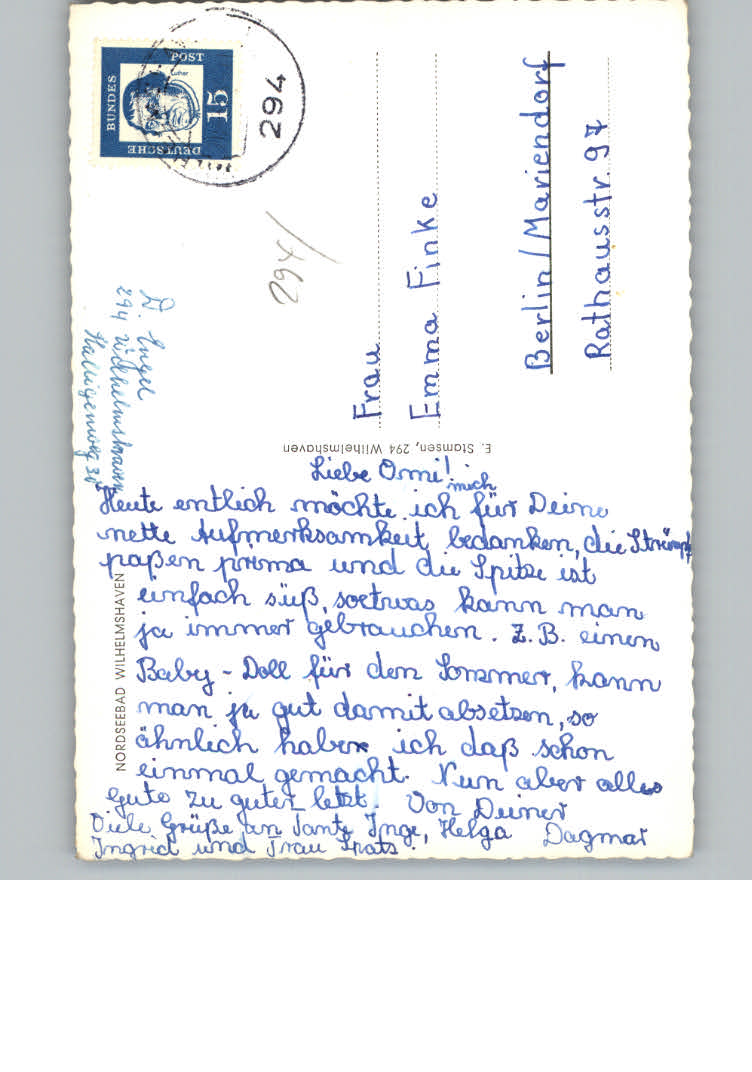 DEUTSCHE
BUNDES
POST
Luther
15
294
294/
D. Engel
294 Wilhelmshaven
30
Frau
Emma Finke
Berlin/Mariendorf
Rathausstr. 97
E. Stamsen, 294 Wilhelmshaven
NORDSEEBAD WILHELMSHAVEN
Liebe Omi!
Heute entlich möchte ich mich für Deine
nette Aufmerksamkeit bedanken, die Strümpf
paßen prima und die Spitze ist
einfach süß, soetwas kann man
ja immer gebrauchen. Z.B. einen
Baby-Doll für den Sommer, kann
man ja gut damit absetzen, so
ähnlich haben ich daß schon
einmal gemacht. Nun aber alles
gute zu guter_letzt! Von Deiner
Dagmar
Viele Grüße an Tante Inge, Helga
Ingrid und Frau Spatz.